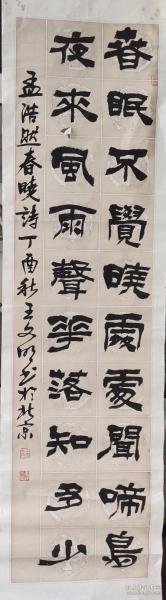 春眠不覺曉處處聞啼鳥
夜來風雨聲花落知多少
孟浩然春曉詩丁酉秋王文明书於北京